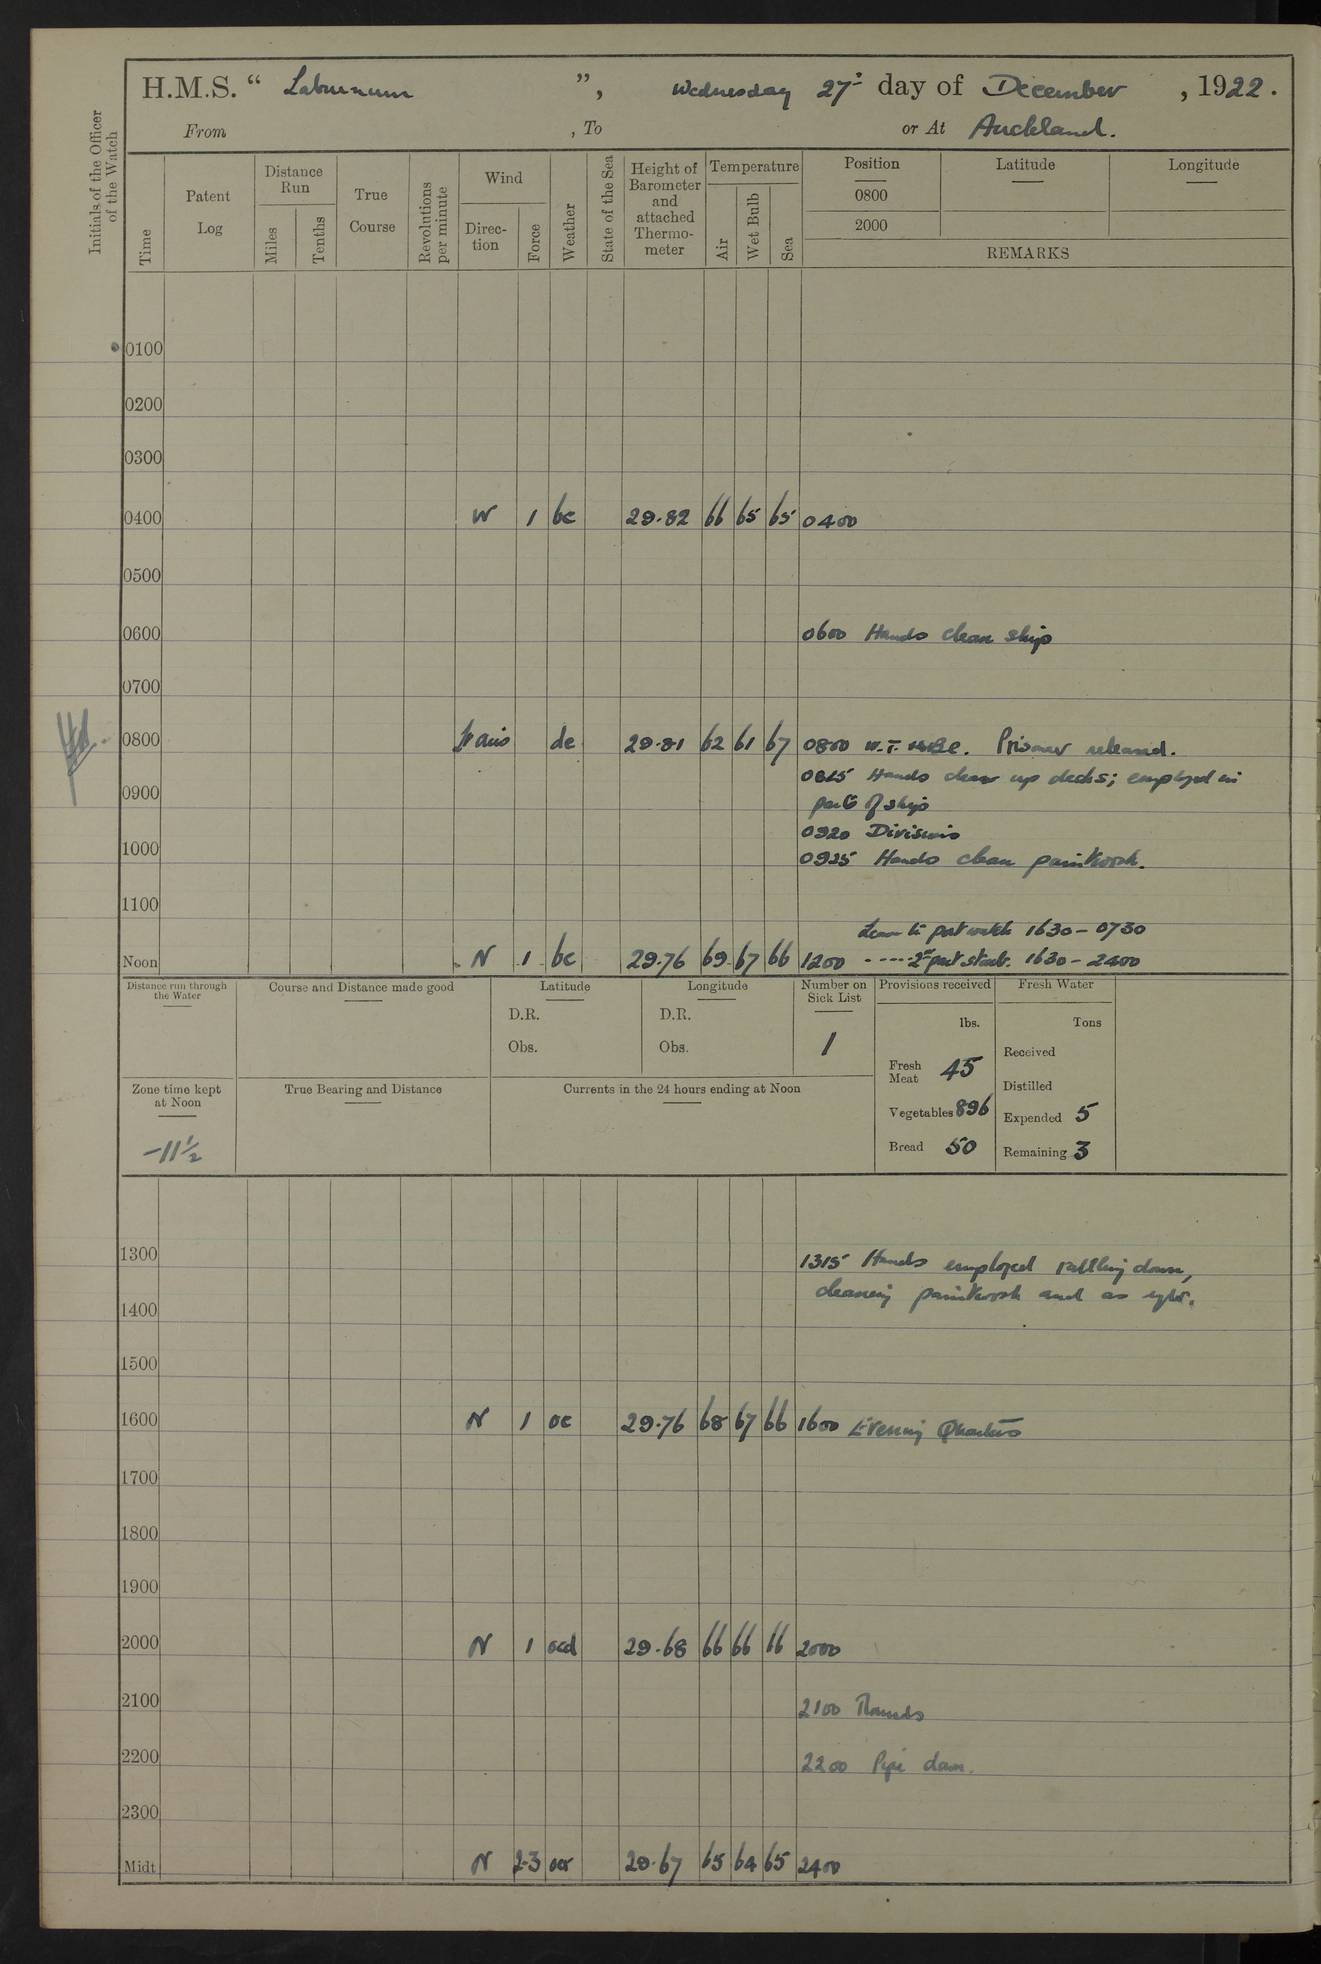 H.M.S. " Laburnum ", Wednesday 27th day of December, 1922.
From , To or At Auckland.
Initials of the Officer of the Watch
Time
Patent Log
Distance Run
Miles
Tenths
True Course
Revolutions per minute
Wind
Direc-tion
Force
Weather
State of the Sea
Height of Barometer and attached Thermo-meter
Temperature
Air
Wet Bulb
Sea
Position Latitude Longitude
0800
2000
REMARKS
0100
0200
0300
0400 W 1 bc 29.82 66 65 65 0400
0500
0600 0600 Hands clean ship
0700
0800 de 29.81 62 61 67 0800 W.T. Prisoner released.
0815 Hands clear up decks; employed in
0900
parts of ship
0920 Divisions
1000
0925 Hands clean paintwork.
1100
Leave to port watch 1630 - 0730
Noon N 1 bc 29.76 69 67 66 1200 - - - - 2nd part starb. 1630 - 2400
Distance run through the Water
Course and Distance made good
Latitude
D.R.
Obs.
Longitude
D.R.
Obs.
Number on Sick List
1
Provisions received
lbs.
Fresh Meat 45
Vegetables 896
Bread 50
Fresh Water
Tons
Received
Distilled
Expended 5
Remaining 3
Zone time kept at Noon
-11 1/2
True Bearing and Distance
Currents in the 24 hours ending at Noon
1300
1315 Hands employed rattling down,
cleaning paintwork and as
1400
1500
1600 N 1 oc 29.76 68 67 66 1600 Evening Quarters
1700
1800
1900
2000 N 1 ocd 29.68 66 66 66 2000
2100 2100 Rounds
2200 2200 Pipe down.
2300
Midt N 2-3 29.67 65 64 65 2400